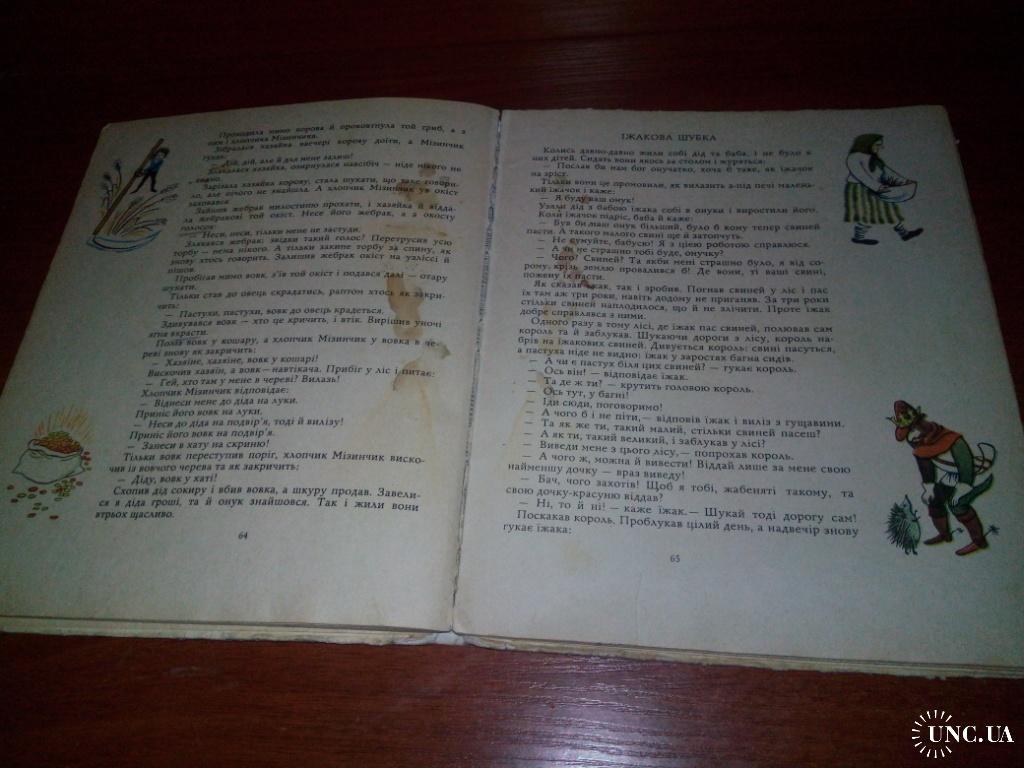 Проходила мимо корова й проковтнула той гриб, а з
ним і хлопчика Мізинчика.
Зібралась хазяйка ввечері корову доїти, а Мізинчик
гукає:
— Дій, дій, але й для мене залиш!
Злякалася хазяйка, озирнулася навсібіч — ніде нікого не
видно.
Зарізала хазяйка корову, стала шукати, що таке говори-
ло, але нічого не знайшла. А хлопчик Мізинчик ув окіст
заховався.
Зайшов жебрак милостиню прохати, і хазяйка й відда-
ла жебракові той окіст. Несе його жебрак, а з окосту
голосок:
— Неси, неси, тільки мене не застуди.
Злякався жебрак: звідки такий голос? Перетрусив усю
торбу — нема нікого. А тільки закине торбу за спину, як
знову хтось говорить. Залишив жебрак окіст на узліссі й
пішов.
Пробігав мимо вовк, з'їв той окіст і подався далі — отару
шукати.
Тільки став до овець скрадатись, раптом хтось як закри-
чить:
— Пастухи, пастухи, вовк до овець крадеться.
Здивувався вовк — хто це кричить, і втік. Вирішив уночі
ягня вкрасти.
Поліз вовк у кошару, а хлопчик Мізинчик у вовка в че-
реві знову як закричить:
— Хазяїне, хазяїне, вовк у кошарі!
Вискочив хазяїн, а вовк — навтікача. Прибіг у ліс і питає:
— Гей, хто там у мене в череві? Вилазь!
Хлопчик Мізинчик відповідає:
— Віднеси мене до діда на луки.
Приніс його вовк на луки.
— Неси до діда на подвір'я, тоді й вилізу!
Приніс його вовк на подвір'я.
— Занеси в хату на скриню!
Тільки вовк переступив поріг, хлопчик Мізинчик виско-
чив із вовчого черева та як закричить:
— Діду, вовк у хаті!
Схопив дід сокиру і вбив вовка, а шкуру продав. Завели-
ся в діда гроші, та й онук знайшовся. Так і жили вони
втрьох щасливо.
64
ЇЖАКОВА ШУБКА
Колись давно-давно жили собі дід та баба, і не було в
них дітей. Сидять вони якось за столом і журяться:
— Послав би нам бог онучатко, хоча б таке, як їжачок
на зріст.
Тільки вони це промовили, як вилазить з-під печі малень-
кий їжачок і каже:
— Я буду ваш онук!
Узяли дід з бабою їжака собі в онуки і виростили його.
Коли їжачок підріс, баба й каже:
— Був би наш онук більший, було б кому тепер свиней
пасти. А такого малого свині ще й затопчуть.
— Не сумуйте, бабусю! Я з цією роботою справлюся.
— А чи не страшно тобі буде, онучку?
— Чого? Свиней? Та якби мені страшно було, я від со-
рому, крізь землю провалився б! Де вони, ті ваші свині,
поженy їх пасти.
Як сказав їжак, так і зробив. Погнав свиней у ліс і пас
їх там аж три роки, навіть додому не приганяв. За три роки
стільки свиней наплодилося, що й не злічити. Проте їжак
добре справлявся з ними.
Одного разу в тому лісі, де їжак пас свиней, полював сам
король та й заблукав. Шукаючи дороги з лісу, король на-
брів на їжакових свиней. Дивується король: свині пасуться,
а пастуха ніде не видно: їжак у заростях багна сидів.
— А чи є пастух біля цих свиней? — гукає король.
— Ось він! — відповідає їжак.
— Та де ж ти? — крутить головою король.
— Ось тут, у багні!
— Іди сюди, поговоримо!
— А чого б і не піти,— відповів їжак і виліз з гущавини.
— Та як же ти, такий малий, стільки свиней пасеш?
— А як ти, такий великий, і заблукав у лісі?
— Виведи мене з цього лісу,— попрохав король.
— А чого ж, можна й вивести! Віддай лише за мене свою
найменшу дочку — враз виведу!
— Бач, чого захотів! Щоб я тобі, жабеняті такому, та
свою дочку-красуню віддав?
— Ні, то й ні! — каже їжак.— Шукай тоді дорогу сам!
Поскакав король. Проблукав цілий день, а надвечір знову
гукає їжака:
65
UNC.UA